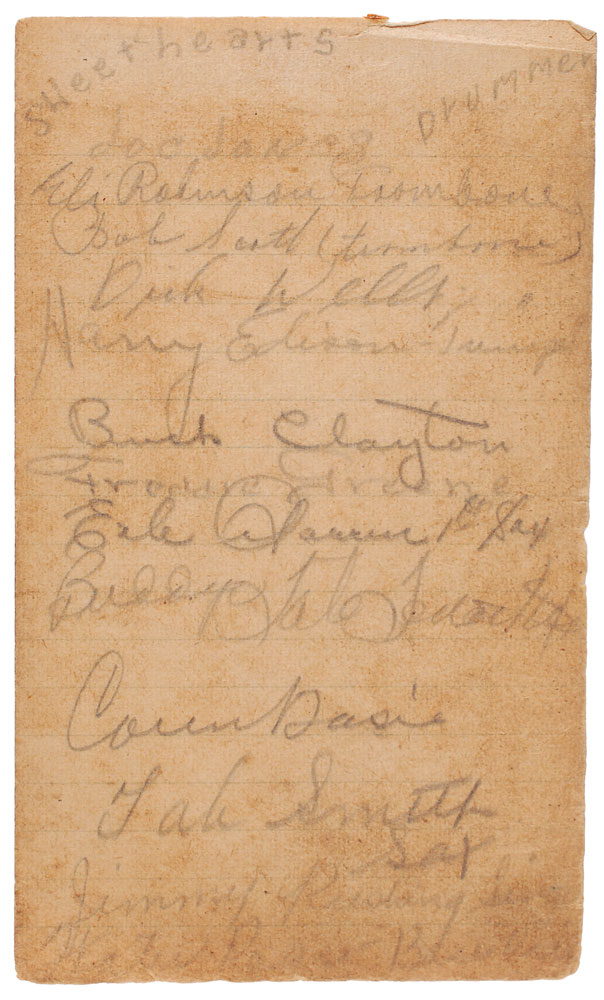 Sweethearts
Drummer
Joe Jones
Eli Robinson Trombone
Bob Scott (trombone)
Dick Wells, "
Harry Edison - Trump
Buck Clayton
Freddie Greene
Earle Warren 1st Sax
Buddy Tate Tenor Sax
Count Basie
Tab Smith
Sax
Jimmy Rushing